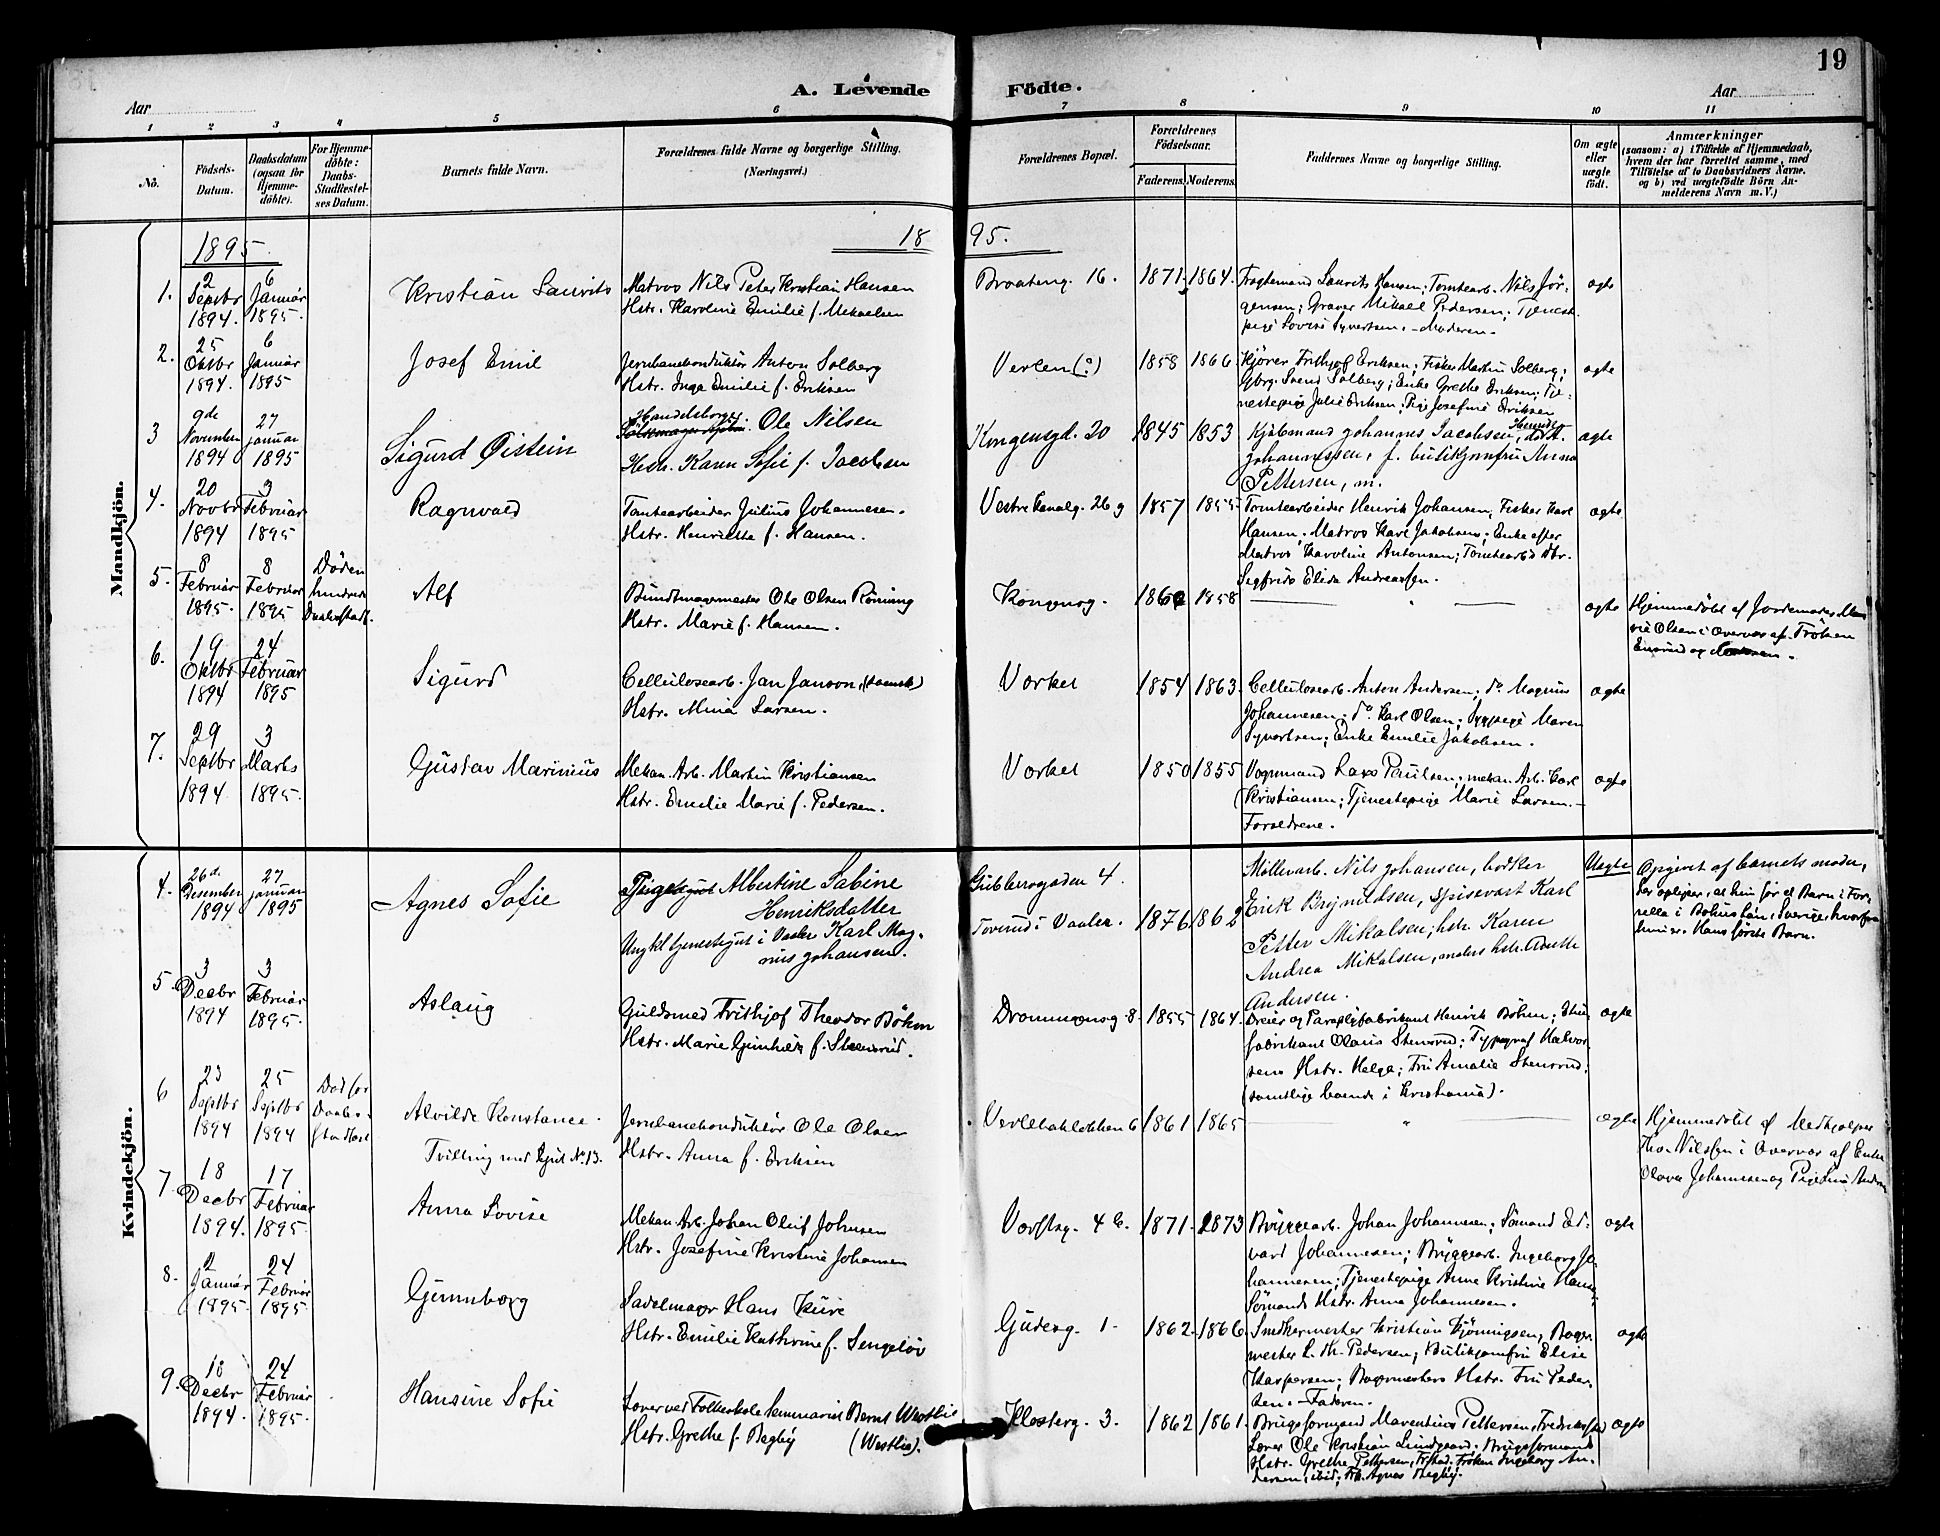 19
A. Levende Födte.
Aar
Aar
1 2 3 4 5 6 7 8 9 10 11
No.
Födsels-Datum.
Daabsdatum (ogsaa for Hjemmedöbte).
For Hjemmedöbte: Daabs-Stadfestelses Datum.
Barnets fulde Navn.
Forældrenes fulde Navne og borgerlige Stilling.
(Næringsvei.)
Forældrenes Bopæl.
Forældrenes Födselsaar.
Faderens. Moderens.
Faddernes Navne og borgerlige Stilling.
Om ægte eller uægte födt.
Anmærkninger
(saasom: a) i Tilfælde af Hjemmedaab, hvem der har forrettet samme, med Tilföielse af to Daabsvidners Navne, og b) ved uægtefödte Börn Anmelderens Navn m. V.)
1895.
1895.
Mandkjön.
1.
2 Septbr 1894.
6 Januar 1895.
Kristian Laurits
Matros Nils Peter Kristian Hansen
Hstr. Karoline Emilie f. Mikaelsen
Braateng. 16.
1871. 1864.
Fragtemand Laurits Hansen; Tomtearb. Nils Jör-
gensen; Graver Mikael Pedersen; Tjenest-
pige Lovise Syvertsen. - Moderen.
ægte
2.
25 Oktbr 1894.
6 Januar 1895
Josef Emil
Jernbanekonduktör Anton Solberg
Hstr. Inga Emilie f. Eriksen
Verlen (:)
1858 1866
Kjörer Frithjof Eriksen; Fisker Martin Solberg;
Gbrg. Svend Solberg; Enke Grethe Eriksen; Tje-
nestepige Julie Eriksen; Pige Josefine Eriksen
ægte
3
9de November 1894
27 januar 1895
Sigurd Öistein
Handelsborger Ole Nilsen
Hstr. Karen Sofie f. Jacobsen
Kongensgd. 20
1845 1853
Kjöbmand Johannes Jacobsen,
Johannessen, f. butikjomfru Anna
Pettersen, m.
ægte
4.
20 Novbr 1894
3 Februar 1895
Ragnvald
Tomtearbeider Julius Johannesen.
Hstr. Henriette f. Hansen.
Vestre Kanalg. 26 g
1857 1855
Tomtearbeider Henrik Johansen, Fisker Karl
Hansen, Matros Karl Jakobsen; Enke efter
Matros Karoline Antonsen; Tomtearb's dtr.
Sigfride Elida Andreassen.
ægte
5.
8 Februar 1895.
8 Februar 1895
Döden hindrede Daabsstadf.
Alf
Bundtmagermester Ole Olsen Rönning
Hstr. Marie f. Hansen.
Kongensg.
1860 1858
ægte
Hjemmedöbt af Jordemoder Ma-
rie Olsen i Overvær af Fröken
6.
19 Oktbr 1894
24 Februar 1895
Sigurd
Cellulosearb. Jan Janson, (svensk)
Hstr. Mina Larsen.
Værket
1854 1863.
Cellulosearb. Anton Andersen; do. Magnus
Johannesen; do. Karl Olsen; Sypige Maren
Syvertsen; Enke Emilie Jakobsen.
ægte
7.
29 Septbr 1894
3 Marts 1895.
Gustav Marinius
Mekan. Arb. Martin Kristiansen
Hstr. Emilie Marie f. Pedersen.
Værket
1850 1855
Vognmand Lars Paulsen, mekan. Arb. Karl
Kristiansen; Tjenestepige Marie Larsen. -
Forældrene.
ægte
Kvindekjön.
4.
26d. Desember 1894
27 januar 1895
Agnes Sofie
Albertine Sabine
Henriksdatter
Ungkl tjenestegut i Vaaler Karl Mag-
nus Johansen.
Gubberogaden 4.
i Vaaler.
1876 1862
Möllearb. Nils Johansen, bödker
Erik Brynildsen, spisevært Karl
Petter Mikalsen; hstr. Karen
Andrea Mikalsen, hstr.
Andersen.
Uægte
Opgivet af barnets moder,
der oplyser, at hun för et Barn i
i Bohuslän i Sverige,
Hans förste Barn.
5.
3 Decbr 1894
3 Februar 1895.
Aslaug
Guldsmed Frithjof Theodor Böhm
Hstr. Marie Gunhild f. Steensrud.
Drammensg. 8.
1855 1864.
Dreier og Paraplyfabrikant Henrik Böhm;
fabrikant Olaus Stensrud; Typograf Halvor-
sens Hstr. Helga; Fru Amalie Stensrud;
(samtlige boende i Kristiania).
ægte
6
23 Septbr 1894
25 Septbr 1894
Död för Daabs-
Alvilde Konstance.
Tvilling med No. 13.
Jernbanekonduktör Ole Olsen
Hstr. Anna f. Eriksen
Verlebakløkken 6
1861 1865
ægte
Hjemmedöbt af Medhjælper
Nilssen i Overvær af Enke
Olava Johannesen og Pige
7.
18 Decbr 1894.
17 Februar 1895.
Anna Lovise
Mekan. Arb. Johan Oluf Johnsen
Hstr. Josefine Kristine Johansen
Værftsg. 4 b.
1871. 1873
Bryggearb. Johan Johannesen; Sömand Ed-
vard Johannesen; Bryggearb. Ingeborg Jo-
hannesen; Tjenestepige Anne Kristine Hansen;
Sömands Hstr. Anna Johannesen.
ægte
8.
2 Januar 1895.
24 Februar 1895.
Gunnborg
Sadelmager Hans Kure
Hstr. Emilie Kathrine f. Sengelöv
Gudesg. 1.
1862. 1866.
Snedkermester Kristian Kjönnigsen, Bager-
mester L. Th. Pedersen; Butikjomfru Elise
Kaspersen; Bagermesters Hstr. Fru Peder-
sen. - Faderen.
ægte
9.
18 Decbr 1894.
24 Februar 1895.
Hansine Sofie
Lærer ved Folkeskole Seminarist Bernt Westlie
Hstr. Grethe f. Bagby (Westlie).
Klosterg. 3.
1862 1861.
Brugsformand Marentius Pettersen, Fredriksstad
Lærer Ole Kristian Lundgaard. Brugsformand
Hstr. Grethe Pettersen, Frstad. Fröken Ingeborg An-
dersen, ibid; Fr. Agnes Bagby.
ægte